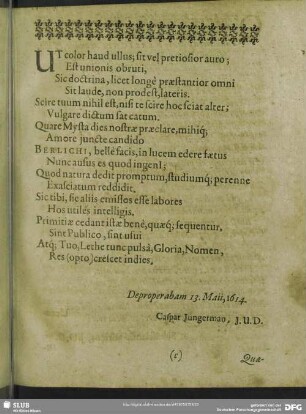 UT color haud ullus; fit vel pretiosior auro;
Est unionis obruti,
Sic doctrina, licet longè præstantior omni
Sit laude, non prodest, lateris.
Scire tuum nihil est, nisi te scire hoc sciat alter;
Vulgare dictum sat catum.
Quare Mysta dies nostræ præclare, mihiq;
Amore juncte candido
BERLICHI, bellè facis, in lucem edere fætus
Nunc ausus es quod ingenI;
Quod natura dedit promptum, studiumq; perenne
Exasciatum reddidit.
Sic tibi, sic aliis emissos esse labores
Hos utiles intelligis.
Primitiæ cedant istæ benè, quæq; sequentur,
Sint Publico, sint usui
Atq; Tuo, Lethe tunc pulsâ, Gloria, Nomen,
Res (opto) crescet indies.
Deproperabam 13. Maii, 1614.
Caspar Jungerman, J. U. D.
(1)
Quæ-
SLUB
DFG